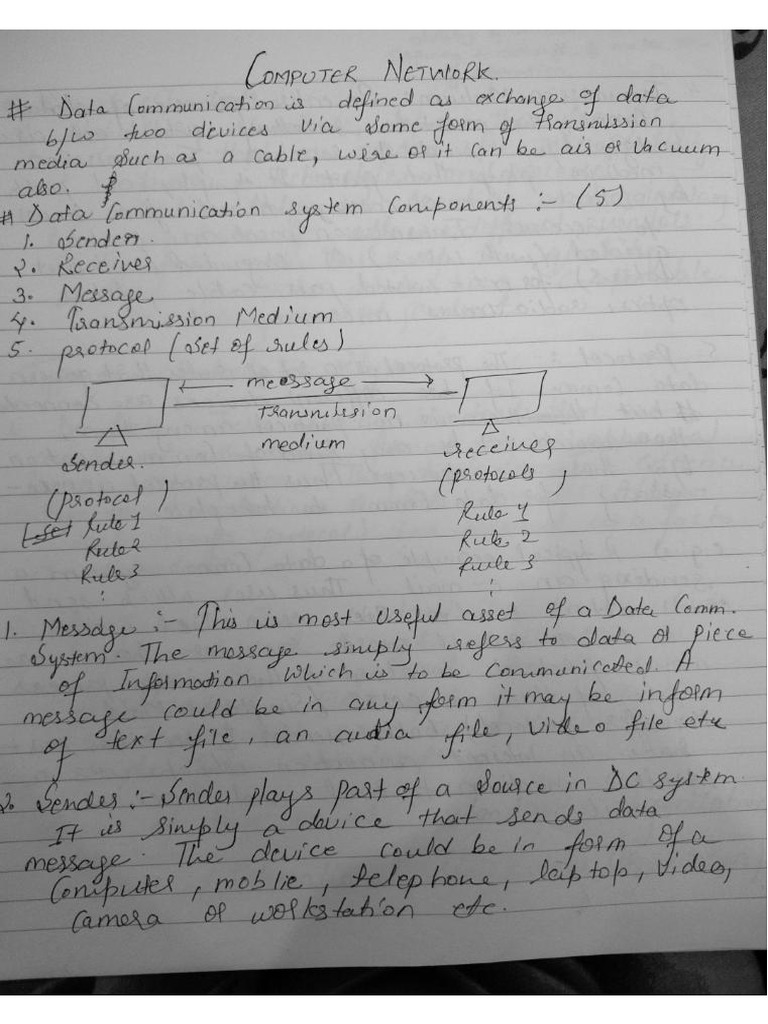 COMPUTER NETWORK.
# Data Communication is defined as exchange of data
b/w two devices via some form of Transmission
media such as a cable, wire or it can be air or vacuum
also.
# Data Communication system Components :- (5)
1. Sender.
2. Receiver
3. Message
4. Transmission Medium
5. protocol (set of rules)
← message →
Transmission
medium
Sender.
receiver
(protocol)
(protocols)
Rule 1
Rule 1
Rule 2
Rule 2
Rule 3
Rule 3
1. Message :- This is most useful asset of a Data Comm.
System. The message simply refers to data or piece
of Information which is to be communicated. A
message could be in any form it may be inform
of text file, an audio file, video file etc
2. Sender :- Sender plays part of a source in DC system.
It is simply a device that sends data
message. The device could be in form of a
Computer, moblie, telephone, laptop, video,
Camera or workstation etc.